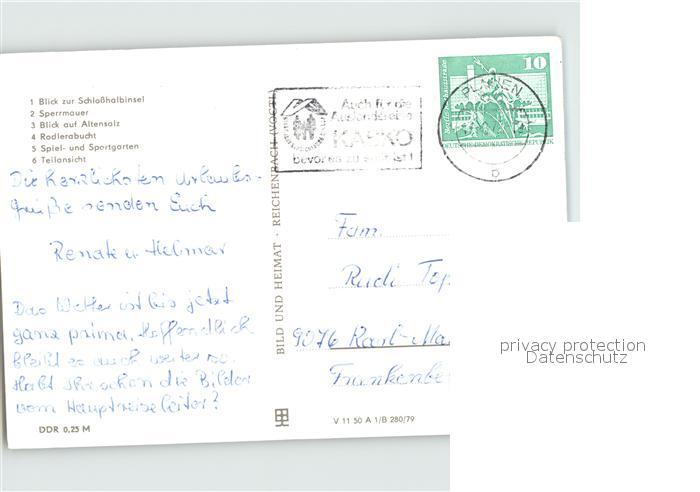 1 Blick zur Schloßhalbinsel
2 Sperrmauer
3 Blick auf Altensalz
4 Radlerabucht
5 Spiel- und Sportgarten
6 Teilansicht
Die herzlichsten Urlaubs-
grüße senden Euch
Renate u. Helmar
Das Wetter ist bis jetzt
ganz prima, hoffendlich
bleibt es auch weiter so.
Habt Ihr schon die Bilder
vom Hauptreiseleiter?
DDR 0,25 M
BILD UND HEIMAT · REICHENBACH (VOGTL)
Auch für die
Auslandsreise
KASKO
bevor es zu spät ist!
10
DEUTSCHE DEMOKRATISCHE REPUBLIK
PLAUEN
b
Fam.
Rudi Töp
9076 Karl-Ma
Frankenbe
V 11 50 A 1/B 280/79
privacy protection
Datenschutz